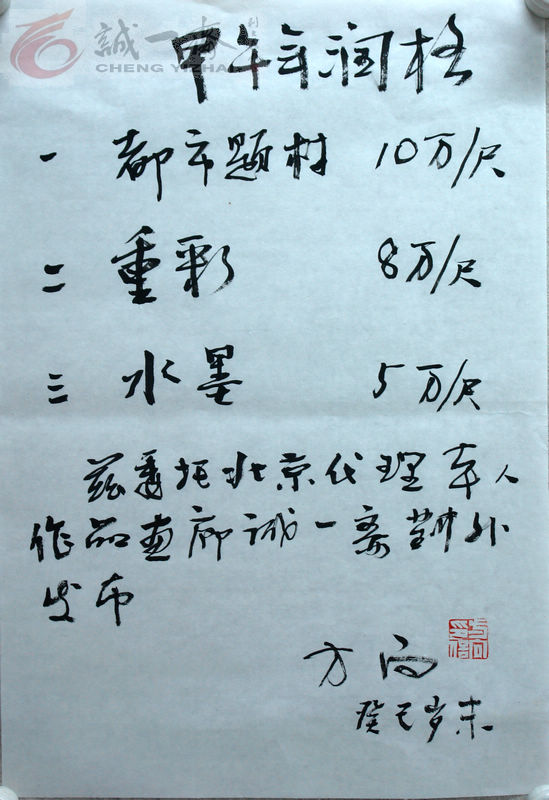 誠一斋
CHENG YIZHAI
甲午年润格
一 都市题材 10万/尺
二 重彩 8万/尺
三 水墨 5万/尺
兹委托北京代理本人
作品画廊诚一斋对外
发布
方向
癸巳岁末